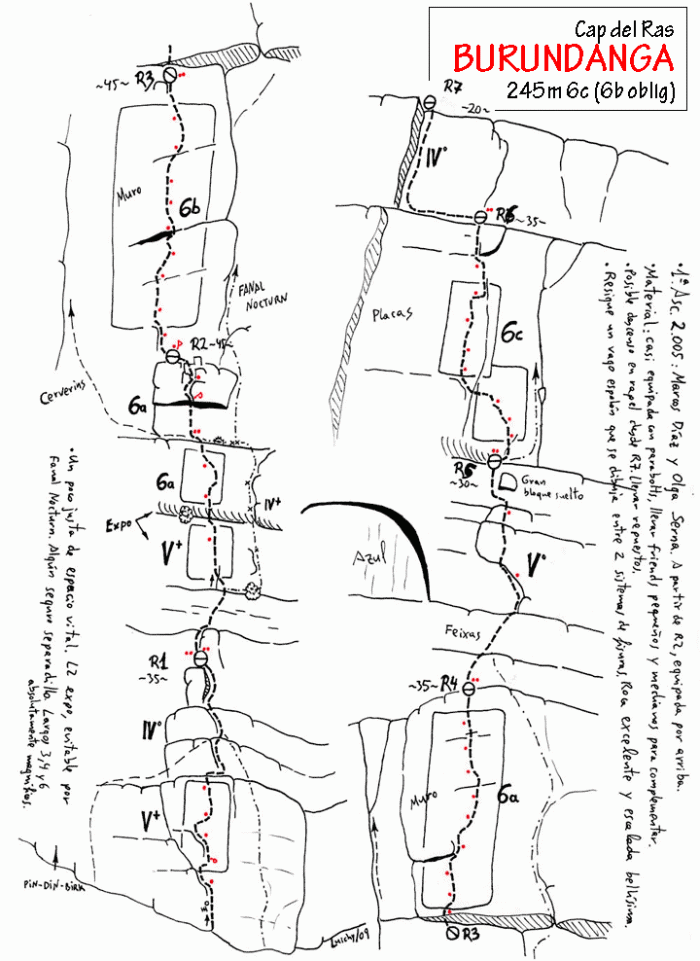 Cap del Ras
BURUNDANGA
245m 6c (6b oblig)
~45~ R3
Muro
6b
FANAL
NOCTURN
R2 ~45~
Cerverins
6a
6a
Expo
IV+
V+
R1
~35~
IV°
V+
PIN-DIN-BIRK
Luichy/09
• Un poco justa de espacio vital. L2 expo, evitable por
Fanal Nocturn. Algún seguro separadillo. Largos 3, 4 y 6
absolutamente magníficos.
R7
~20~
IV°
R6 ~35~
Placas
6c
R5
~30~
Gran
bloque suelto
Azul
V°
Feixas
~35~ R4
Muro
6a
R3
• 1ª Asc. 2.005: Marcos Díaz y Olga Serna. A partir de R2, equipada por arriba.
• Material: casi equipada con parabolts, llevar friends pequeños y medianos para complementar.
• Posible descenso en rapel desde R7. Llevar repuestos.
• Resigue un vago espolón que se dibuja entre 2 sistemas de fisuras. Roca excelente y escalada bellísima.